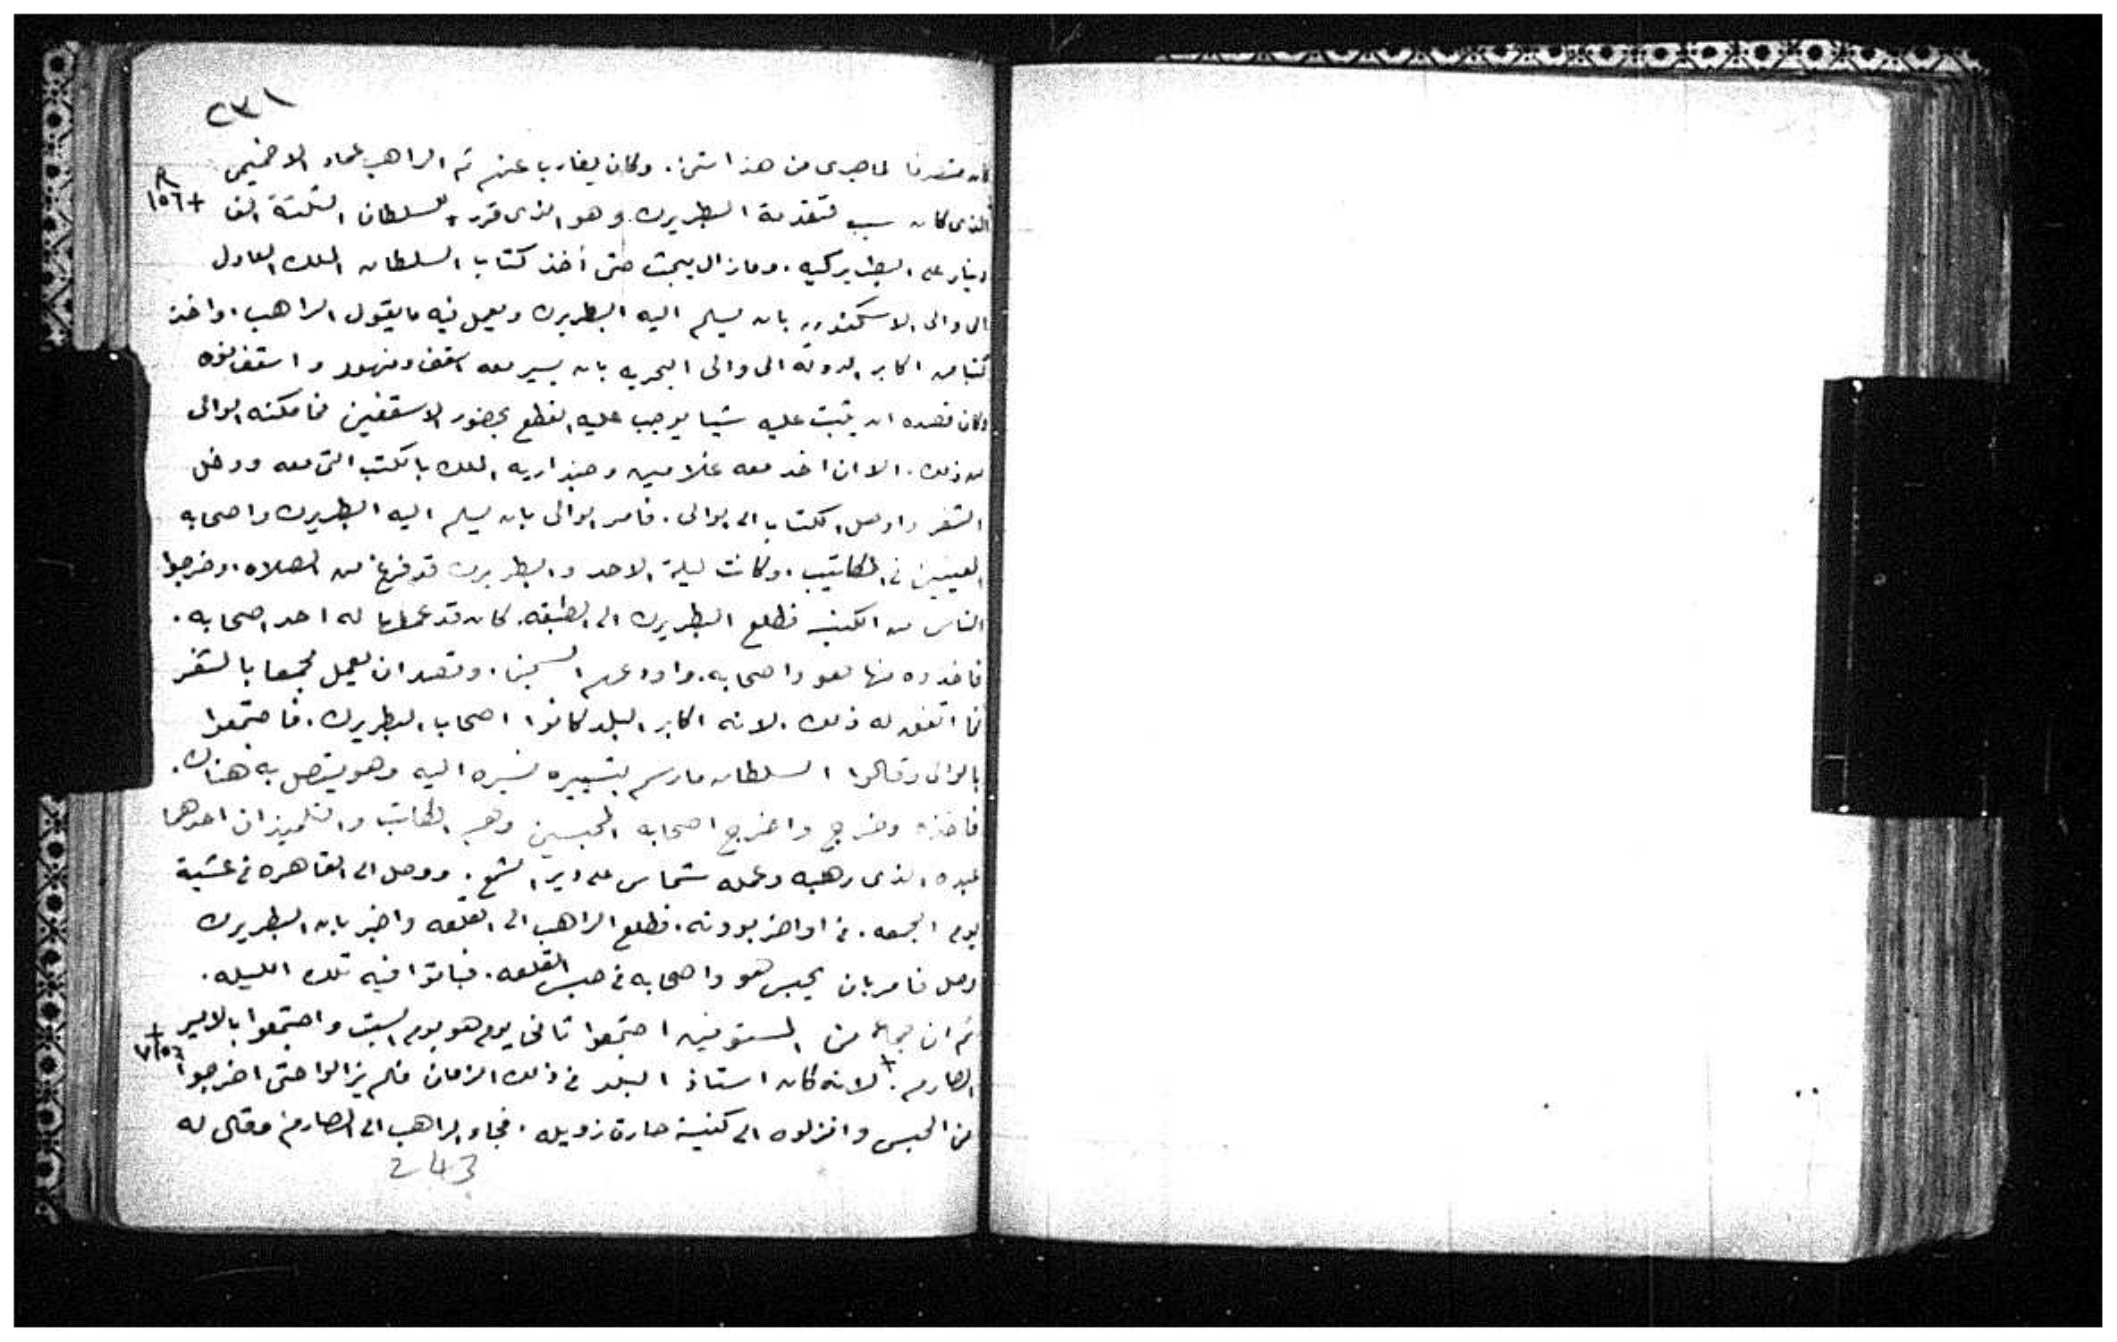 ٢٣١
كان متصرفا لما جرى من هذا شئ. وكان يغارب عنهم ثم الراهب عماد الاخميمى
R
١٥٦ +
الذى كان سبب لتقدمة البطريرك وهو الذى قرر للسلطان الثلثة الف
دينار على البطريركيه. وما زال يبحث حتى أخذ كتاب السلطان الملك العادل
الى والى الاسكندريه بان يسلم اليه البطريرك ويعمل فيه ما يقول الراهب. واخذ
كتبا من اكابر الدولة الى والى البحريه بان يسير معه اسقف دمنهور واسقف فوه
وكان قصده ان يثبت عليه شيا يوجب عليه القطع بحضور الاسقفين فما مكنه الوالى
من ذلك. الا ان اخد معه غلامين وجنداريه الملك بالكتب التى معه ودخل
الثغر واوصل الكتاب الى الوالى. فامر الوالى بان يسلم اليه البطريرك واصحابه
المعينين فى المكاتيب. وكانت ليلة الاحد والبطريرك قد فرغ من الصلاه. وخرجوا
الناس من الكنيسه فطلع البطريرك الى الطبقه. كان قد عملها له احد اصحابه.
فاخدوه منها هو واصحابه. واودعهم السجن. وقصد ان يعمل مجمعا بالثغر
فما اتفق له ذلك. لانه اكابر البلد كانوا اصحاب البطريرك. فاجتمعوا
بالوالى وقالوا السلطان ما رسم بتسييره نسيره اليه وهو يتصل به هناك.
فاخذه وخرج واخرج اصحابه المحبسين وهم الكاتب والتلميذان احدهما
عبده الذى رهبه وعمله شماس على دير الشمع. ووصل الى القاهره فى عشية
يوم الجمعه. فى اواخر بوونه. فطلع الراهب الى القلعه واخبر بان البطريرك
وصل فامر بان يحبس هو واصحابه فى حبس القلعه. فباتوا فيه تلك الليله.
ثم ان جماعه من المستوفيين اجتمعوا ثانى يوم هو يوم السبت واجتمعوا بالامير
+
١٥٦v
الصارم. + لانه كان استاذ البلد فى ذلك الزمان فلم يزالوا حتى اخرجوا
من الحبس وانزلوه الى كنيسة حارة زويله. فجاء الراهب الى الصارم وقال له
243